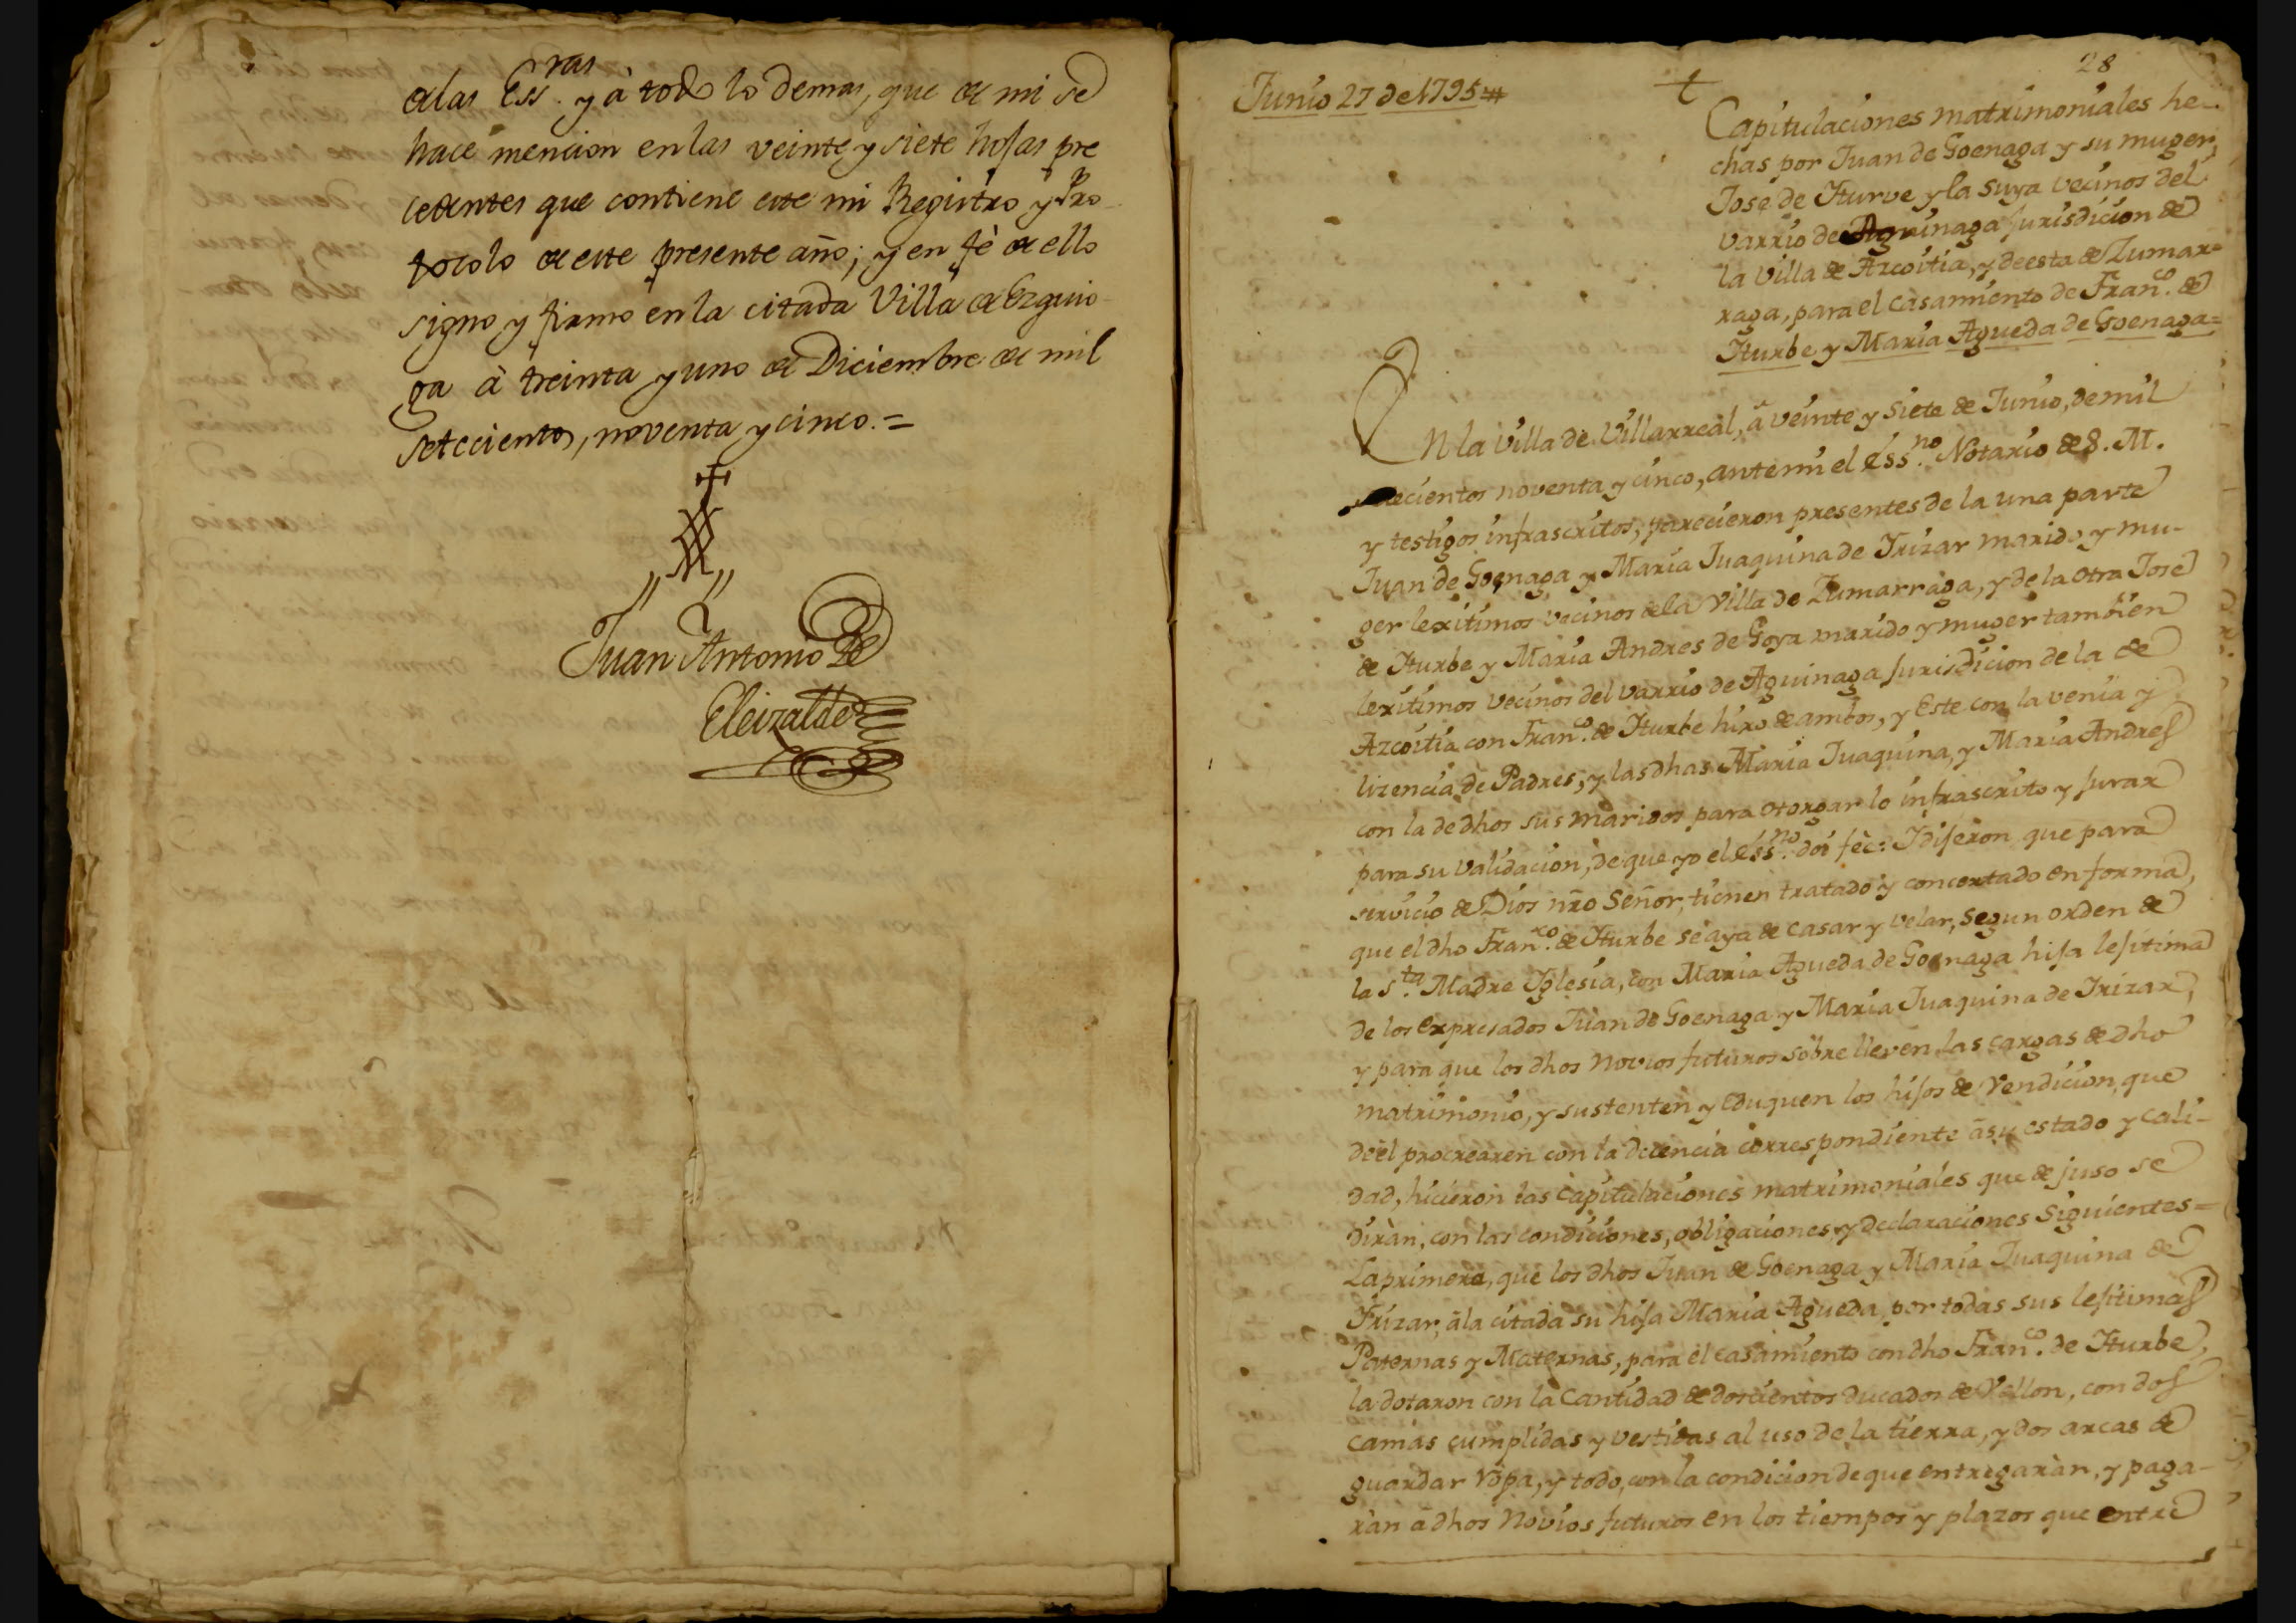 de las Ess.ras y à todo lo demas, que de mi se
hace mencion en las veinte y siete hojas pre
cedentes que contiene este mi Registro y Pro-
tocolo de este presente año; y en fè de ello
signo y firmo en la citada Villa de Ezquio-
ga à treinta y uno de Diciembre de mil
setecientos, noventa y cinco.=
Juan Antonio de
Eleizalde
28
Junio 27 de 1795
Capitulaciones matrimoniales he-
chas por Juan de Goenaga y su muger,
José de Yturve y la suya vecinos del
varrio de Aguinaga jurisdicion de
la villa de Azcoitia, y de esta de Zumar=
raga, para el casamiento de Fran.co de
Yturbe y Maria Agueda de Goenaga=
En la villa de Villarreal, â veinte y siete de Junio, de mil
setecientos noventa y cinco, ante mi el Ess.no Notario de S. M.
y testigos infrascritos, parecieron presentes de la una parte
Juan de Goenaga y Maria Juaquina de Yrizar marido y mu-
ger lexitimos vecinos de la Villa de Zumarraga, y de la otra José
de Yturbe y Maria Andres de Goya marido y muger tambien
lexitimos vecinos del varrio de Aguinaga jurisdicion de la de
Azcoitia con Fran.co de Yturbe hixo de ambos, y Este con la venia y
lizencia de Padres, y las dhas Maria Juaquina, y Maria Andres
con la de dhos sus maridos para otorgar lo infrascrito y jurar
para su validacion, de que yo el Ess.no doi fèe: Y dijeron que para
servicio de Dios nro Señor, tienen tratado y concertado en forma,
que el dho Fran.co de Yturbe se aya de casar y velar, segun orden de
la S.ta Madre Yglesia, con Maria Agueda de Goenaga hija lejitima
de los expresados Juan de Goenaga y Maria Juaquina de Yrizar,
y para que los dhos Novios futuros sobrelleven las cargas de dho
matrimonio, y sustenten y eduquen los hijos de Vendicion, que
de él procrearen con la decencia correspondiente â su estado y cali-
dad, hicieron las capitulaciones matrimoniales que de juso se
diràn, con las condiciones, obligaciones y declaraciones Siguientes=
La primera, que los dhos Juan de Goenaga y Maria Juaquina de
Yrizar, â la citada su hija Maria Agueda, por todas sus lejitimas
Paternas y Maternas, para el casamiento con dho Fran.co de Yturbe,
la dotaron con la Cantidad de doscientos ducados de Vellon, con dos
camas cumplidas y vestidas al uso de la tierra, y dos arcas de
guardar ropa, y todo, con la condicion de que entregaràn, y paga-
ràn a dhos Novios futuros en los tiempos y plazos que entre